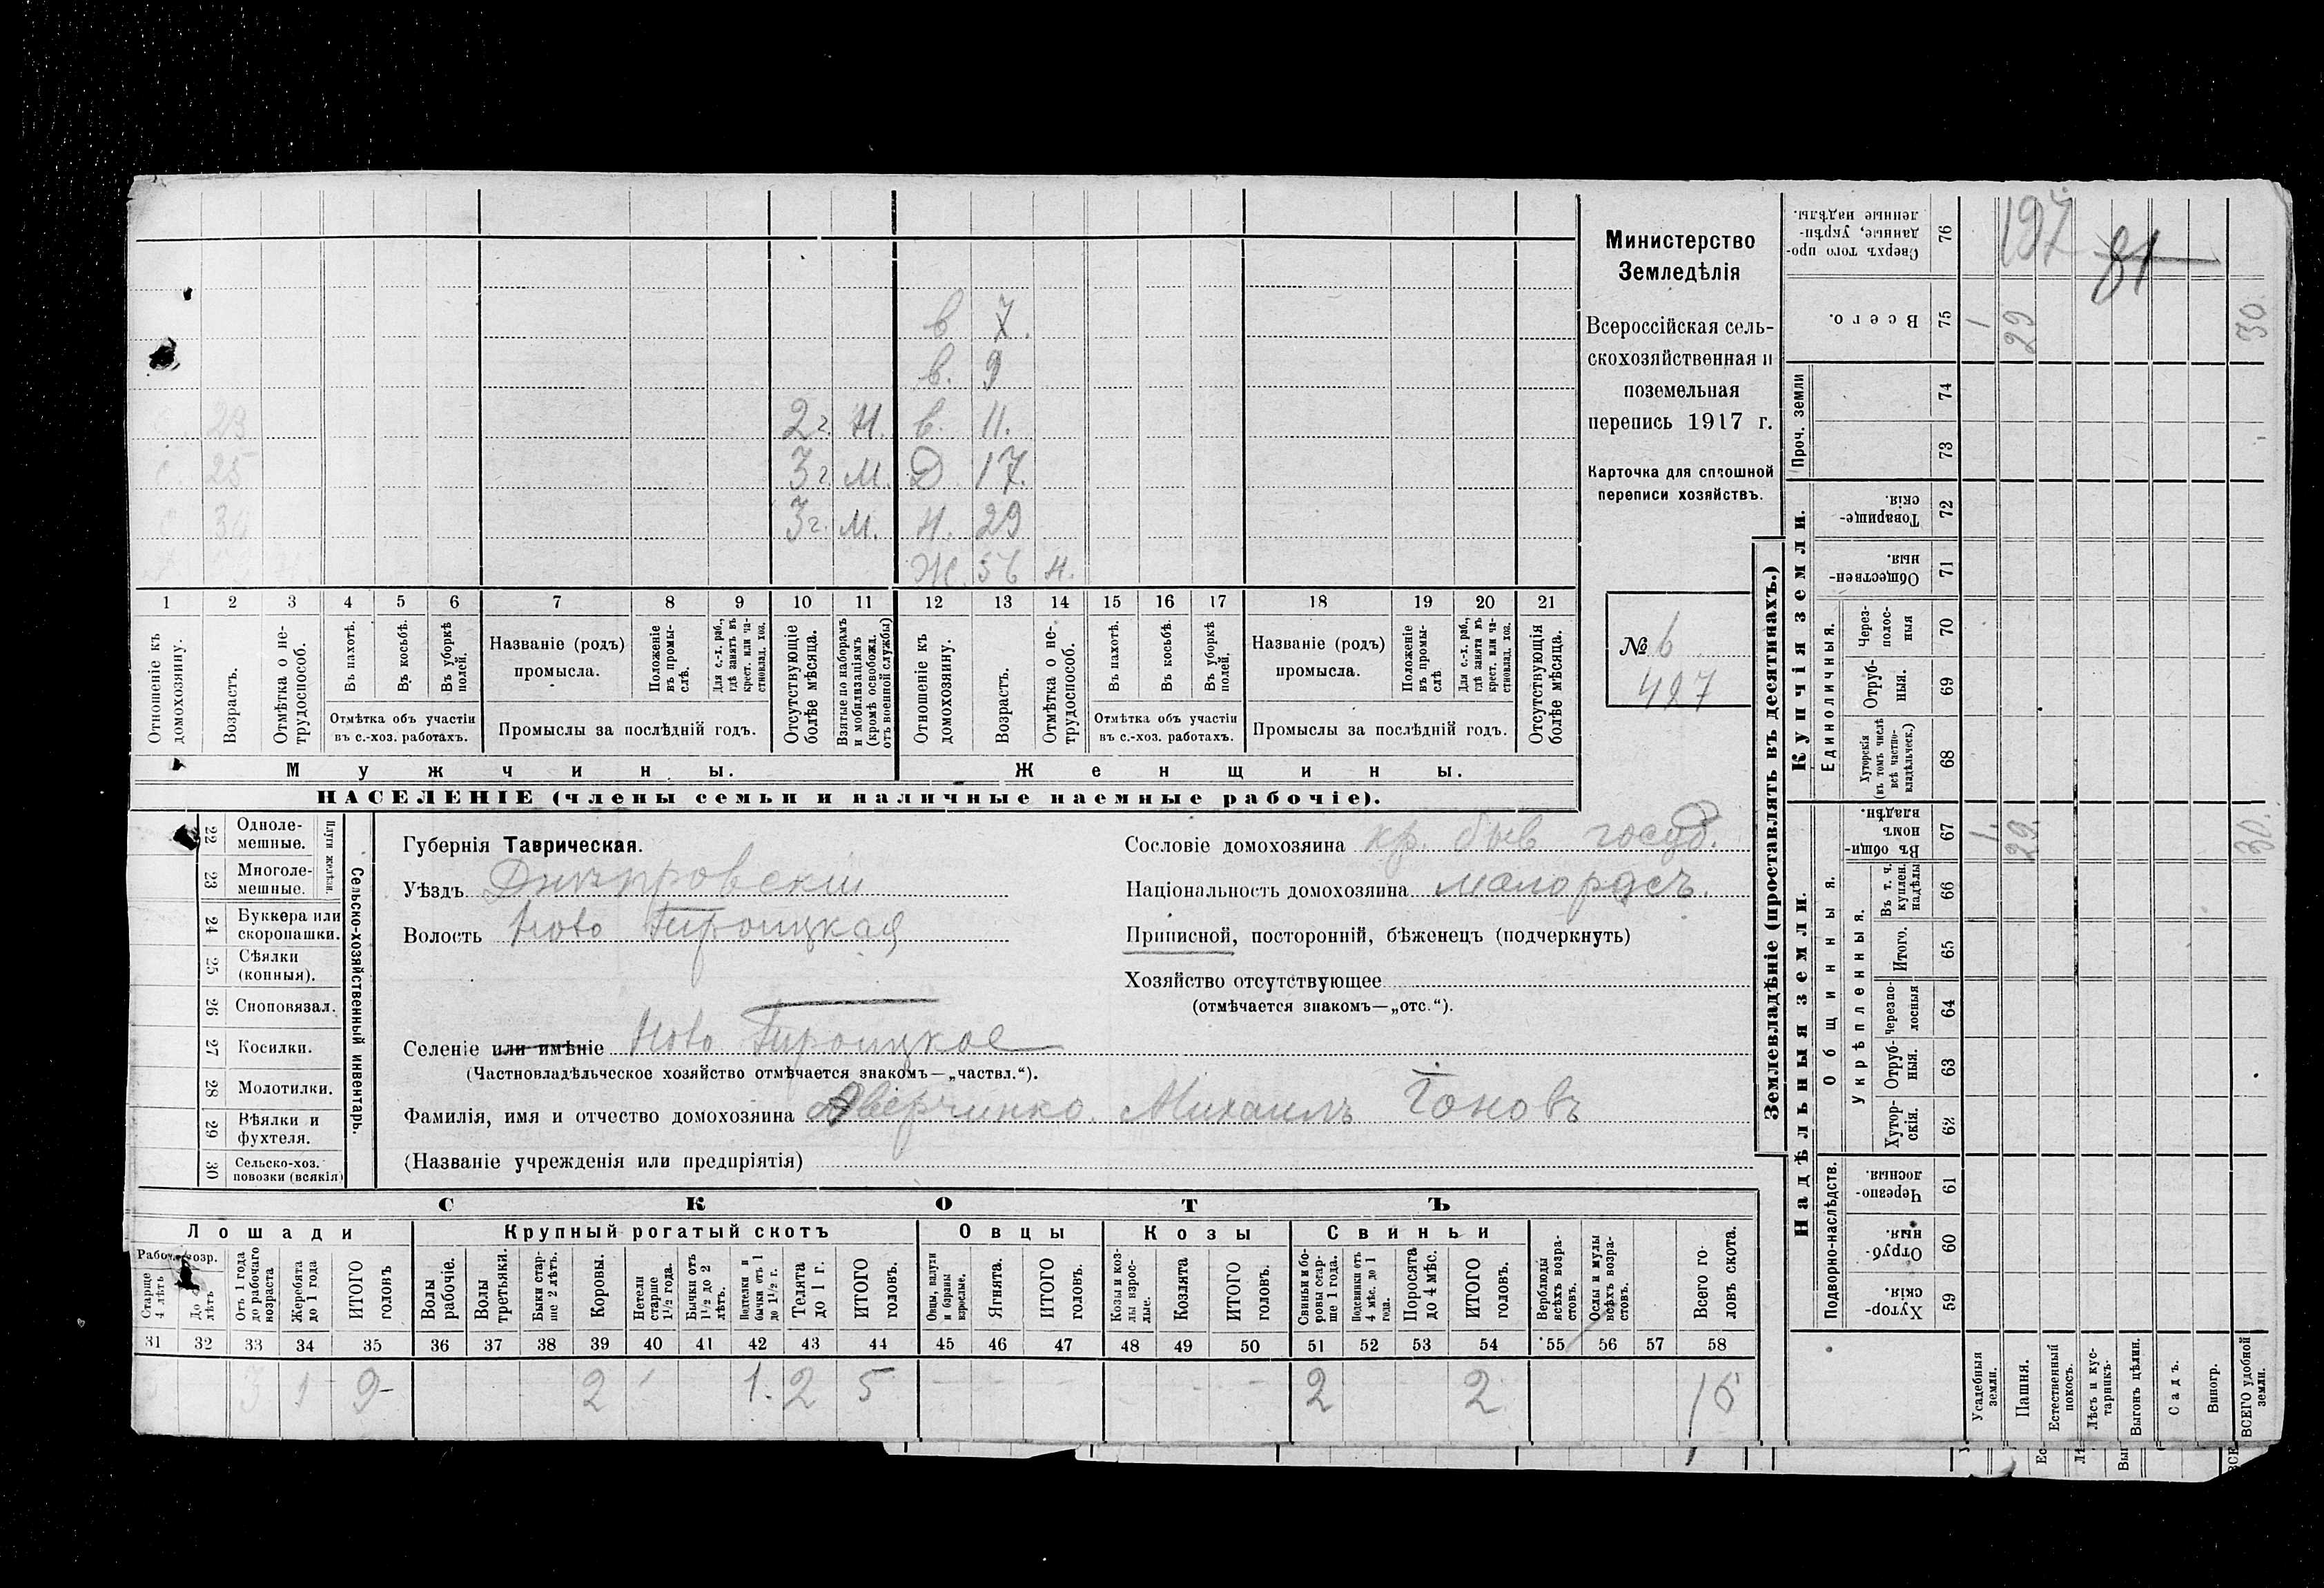 в 7.
в. 9
23 2 г. Н. в. 11.
25 3 г. М. Д 17.
30 3 г. М. Н. 29
Ж. 56 Н.
1 2 3 4 5 6 7 8 9 10 11 12 13 14 15 16 17 18 19 20 21
Отношеніе къ домохозяину.
Возрастъ.
Отмѣтка о не-трудоспособ.
Въ пахотѣ.
Въ косьбѣ.
Въ уборкѣ полей.
Отмѣтка объ участіи
въ с.-хоз. работахъ.
Названіе (родъ)
промысла.
Положеніе въ промы-слѣ.
Для с.-х. раб., гдѣ занятъ въ крест. или ча-стновлад. хоз.
Промыслы за послѣдній годъ.
Отсутствующіе болѣе мѣсяца.
Взятые по наборамъ и мобилизаціямъ (кромѣ освобожд. отъ военной службы)
Отношеніе къ домохозяину.
Возрастъ.
Отмѣтка о не-трудоспособ.
Въ пахотѣ.
Въ косьбѣ.
Въ уборкѣ полей.
Отмѣтка объ участіи
въ с.-хоз. работахъ.
Названіе (родъ)
промысла.
Положеніе въ промы-слѣ
Для с.-х. раб., гдѣ занята въ крест. или ча-стновлад. хоз.
Промыслы за послѣдній годъ.
Отсутствующія болѣе мѣсяца.
Мужчины.
Женщины.
НАСЕЛЕНІЕ (члены семьи и наличные наемные рабочіе).
Министерство
Земледѣлія
Всероссійская сель-
скохозяйственная и
поземельная
перепись 1917 г.
Карточка для сплошной
переписи хозяйствъ.
№ 6
427
22 Одноле-мешные.
23 Многоле-мешные.
Плуги желѣзн.
24 Буккера или скоропашки.
25 Сѣялки (конныя).
26 Сноповязал.
27 Косилки.
28 Молотилки.
29 Вѣялки и фухтеля.
30 Сельско-хоз. повозки (всякія)
Сельско-хозяйственный инвентарь.
Губернія Таврическая.
Уѣздъ Днѣпровскій
Волость Ново Троицкая
Селеніе или имѣніе Ново Троицкое
(Частновладѣльческое хозяйство отмѣчается знакомъ—„частвл.“).
Фамилія, имя и отчество домохозяина Аверчинко. Михаилъ
(Названіе учрежденія или предпріятія)
Сословіе домохозяина кр. быв госуд.
Національность домохозяина малорасъ.
Приписной, посторонній, бѣженецъ (подчеркнуть)
Хозяйство отсутствующее
(отмѣчается знакомъ—„отс.“).
СКОТЪ
Лошади
Крупный рогатый скотъ
Овцы
Козы
Свиньи
Рабоч. возр.
Старше 4 лѣтъ
До 4 лѣтъ
Отъ 1 года до рабочаго возраста
Жеребята до 1 года
ИТОГО головъ
Волы рабочіе.
Волы третьяки.
Быки стар-ше 2 лѣтъ.
Коровы.
Нетели старше 1½ года.
Бычки отъ 1½ до 2 лѣтъ.
Подтелки и бычки отъ 1 до 1½ г.
Телята до 1 г.
ИТОГО головъ.
Овцы, валухи и бараны взрослые.
Ягнята.
ИТОГО головъ.
Козы и коз-лы взрос-лые.
Козлята
ИТОГО головъ.
Свиньи и бо-ровы стар-ше 1 года.
Подсвинки отъ 4 мѣс. до 1 года.
Поросята до 4 мѣс.
ИТОГО головъ.
Верблюды всѣхъ возра-стовъ.
Ослы и мулы всѣхъ возра-стовъ.
Всего го-ловъ скота.
31 32 33 34 35 36 37 38 39 40 41 42 43 44 45 46 47 48 49 50 51 52 53 54 55 56 57 58
3 1 9 2 1. 2 5 2 2 16
Землевладѣніе (проставлять въ десятинахъ.)
Надѣльныя земли.
Купчія земли.
Проч. земли
Подворно-наслѣдств.
Общинныя.
Укрѣпленныя.
Единоличныя.
Сверхъ того про-данные, укрѣп-ленные надѣлы. 76
Всего. 75
74
73
Товарище-скія. 72
Обществен-ныя. 71
Через-полос-ныя 70
Отруб-ныя. 69
Хуторскія (въ томъ числѣ всѣ частно-владѣльческ.) 68
Въ общин-номъ владѣн. 67
Въ т. ч. куплен. надѣлы 66
Итого. 65
Черезпо-лосныя 64
Отруб-ныя. 63
Хутор-скія. 62
Черезпо-лосныя. 61
Отруб-ныя. 60
Хутор-скія. 59
Усадебныя земли.
Пашня.
Естественный покосъ.
Лѣсъ и кус-тарникъ.
Выгонъ цѣлин.
Садъ.
Виногр.
ВСЕГО удобной земли.
197
81
1 29 30
1. 29. 30.